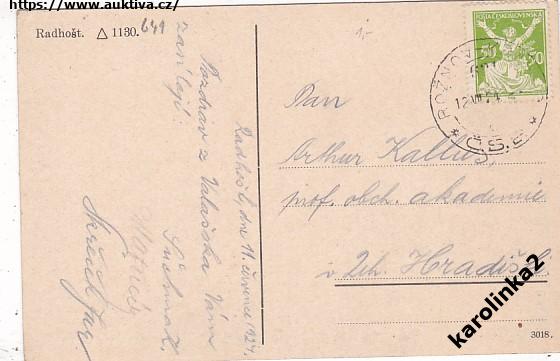 https://www.auktiva.cz/
Radhošt. △ 1130.
641
1-
POŠTA ČESKOSLOVENSKÁ
50 50
ROŽNOV
12 VII 24
* Č.S.R. *
Radhošť, dne 11. července 1924.
Pozdrav z Valašska Vám
zasílají
Pan
Arthur Kallus,
prof. obch. akademie
v Uh. Hradišti
3018.
karolinka2